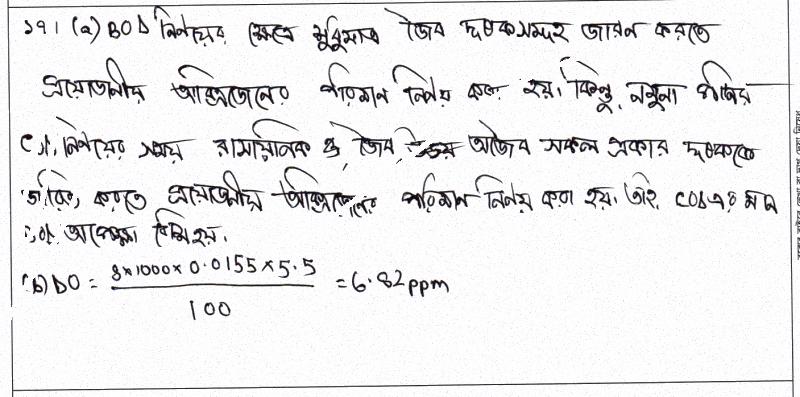 ১৭। (a) BOD নির্ণয়ের ক্ষেত্রে শুধুমাত্র জৈব দূষকসমূহ জারন করতে
প্রয়োজনীয় অক্সিজেনের পরিমান নির্ণয় করা হয়। কিন্তু নমুনা পানির
নির্ণয়ের সময় রাসায়নিক ও জৈব অজৈব সকল প্রকার দূষককে
জারিত করতে প্রয়োজনীয় অক্সিজেনের পরিমান নির্ণয় করা হয়। তাই COD এর মান
অপেক্ষা বেশি হয়।
(b) DO = 8×1000×0.0155×5.5 / 100 = 6.82 ppm